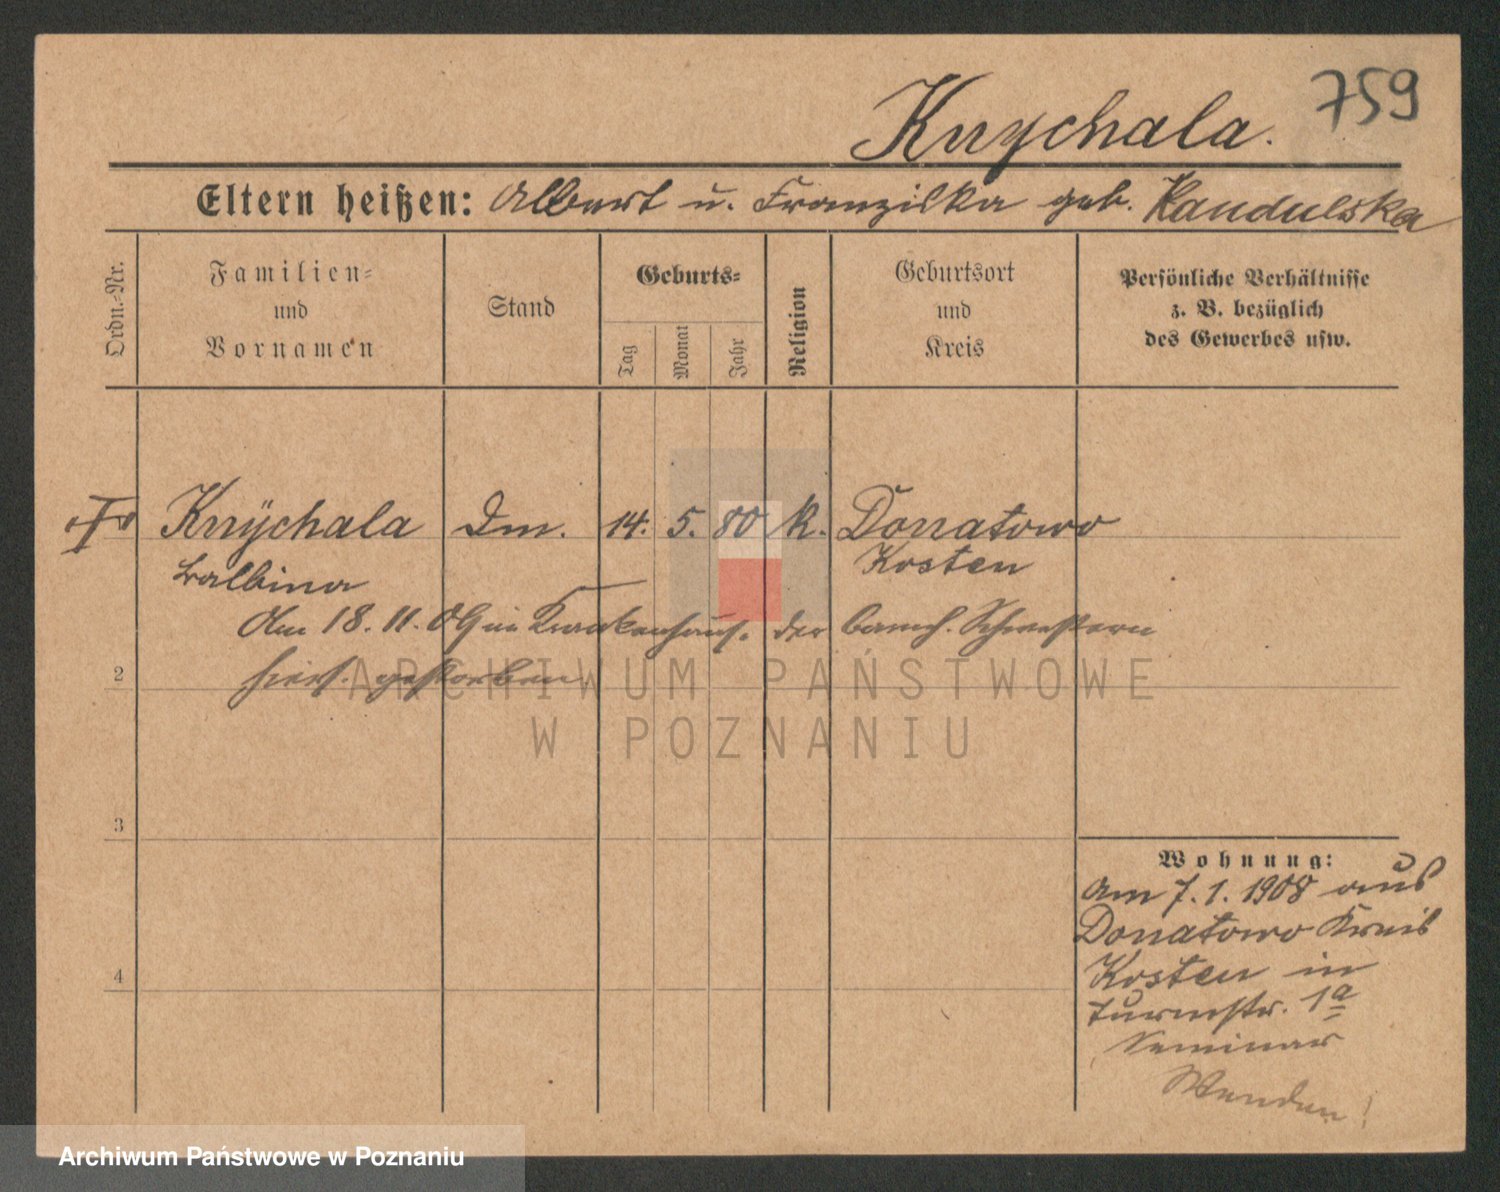 759
Knychala.
Eltern heißen: Albert u. Franziska geb. Kandulska
Ordn.-Nr.
Familien-
und
Vornamen
Stand
Geburts-
Tag
Monat
Jahr
Religion
Geburtsort
und
Kreis
Persönliche Verhältnisse
z. B. bezüglich
des Gewerbes usw.
Knÿchala Dm. 14. 5. 80 k. Donatowo
Balbina Kosten
Am 18. 11. 09 im Krankenhaus. der barmh. Schwestern
hiers. gestorben
2
3
4
ARCHIWUM PAŃSTWOWE
W POZNANIU
Wohnung:
Am 7. 1. 1908 aus
Donatowo Kreis
Kosten in
Turmstr. 1a
Seminar
Wenden!
Archiwum Państwowe w Poznaniu